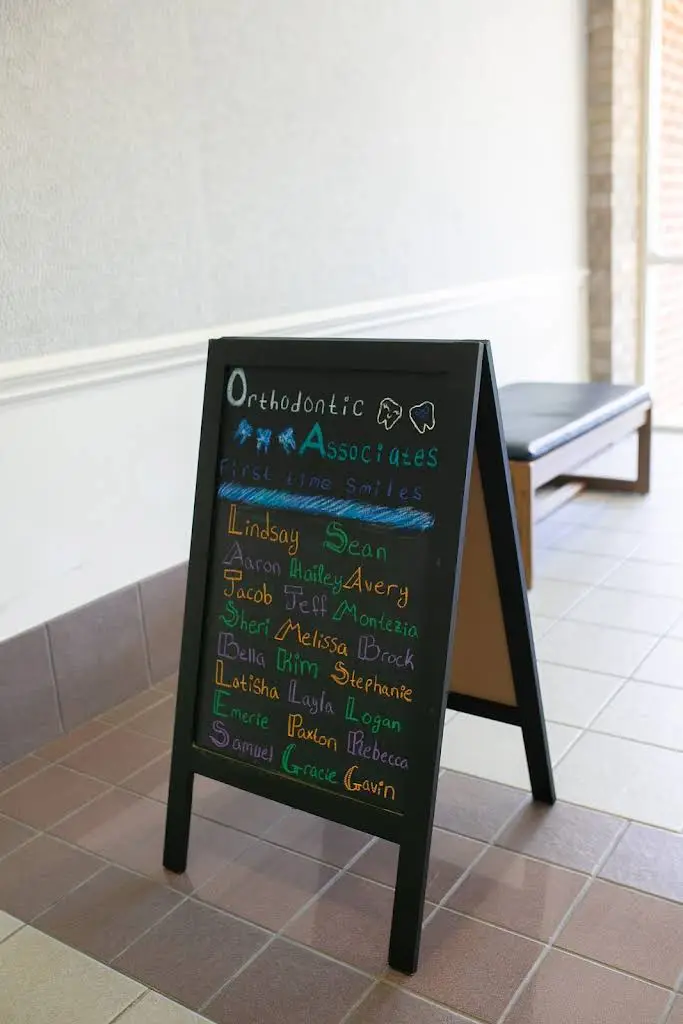 Orthodontic
Associates
First time Smiles
Lindsay Sean
Aaron Hailey Avery
Jacob Jeff Montezia
Sheri Melissa Brock
Bella Kim Stephanie
Latisha Layla Logan
Emerie Paxton Rebecca
Samuel Gracie Gavin